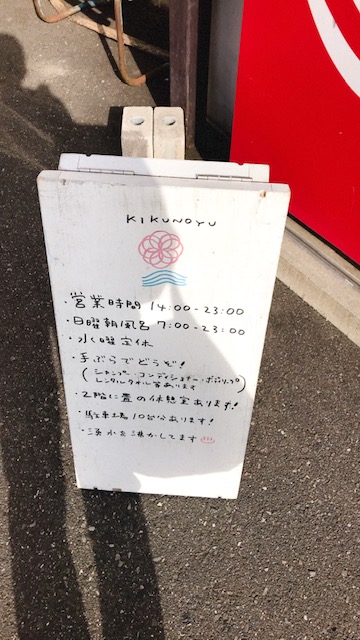 KIKUNOYU
・営業時間 14:00-23:00
・日曜朝風呂 7:00-23:00
・水曜定休
・手ぶらでどうぞ!
(シャンプー・コンディショナー・ボディソープ
レンタルタオル等あります)
・2階に畳の休憩室あります!
・駐車場10台分あります!
・湧水を沸かしてます♨